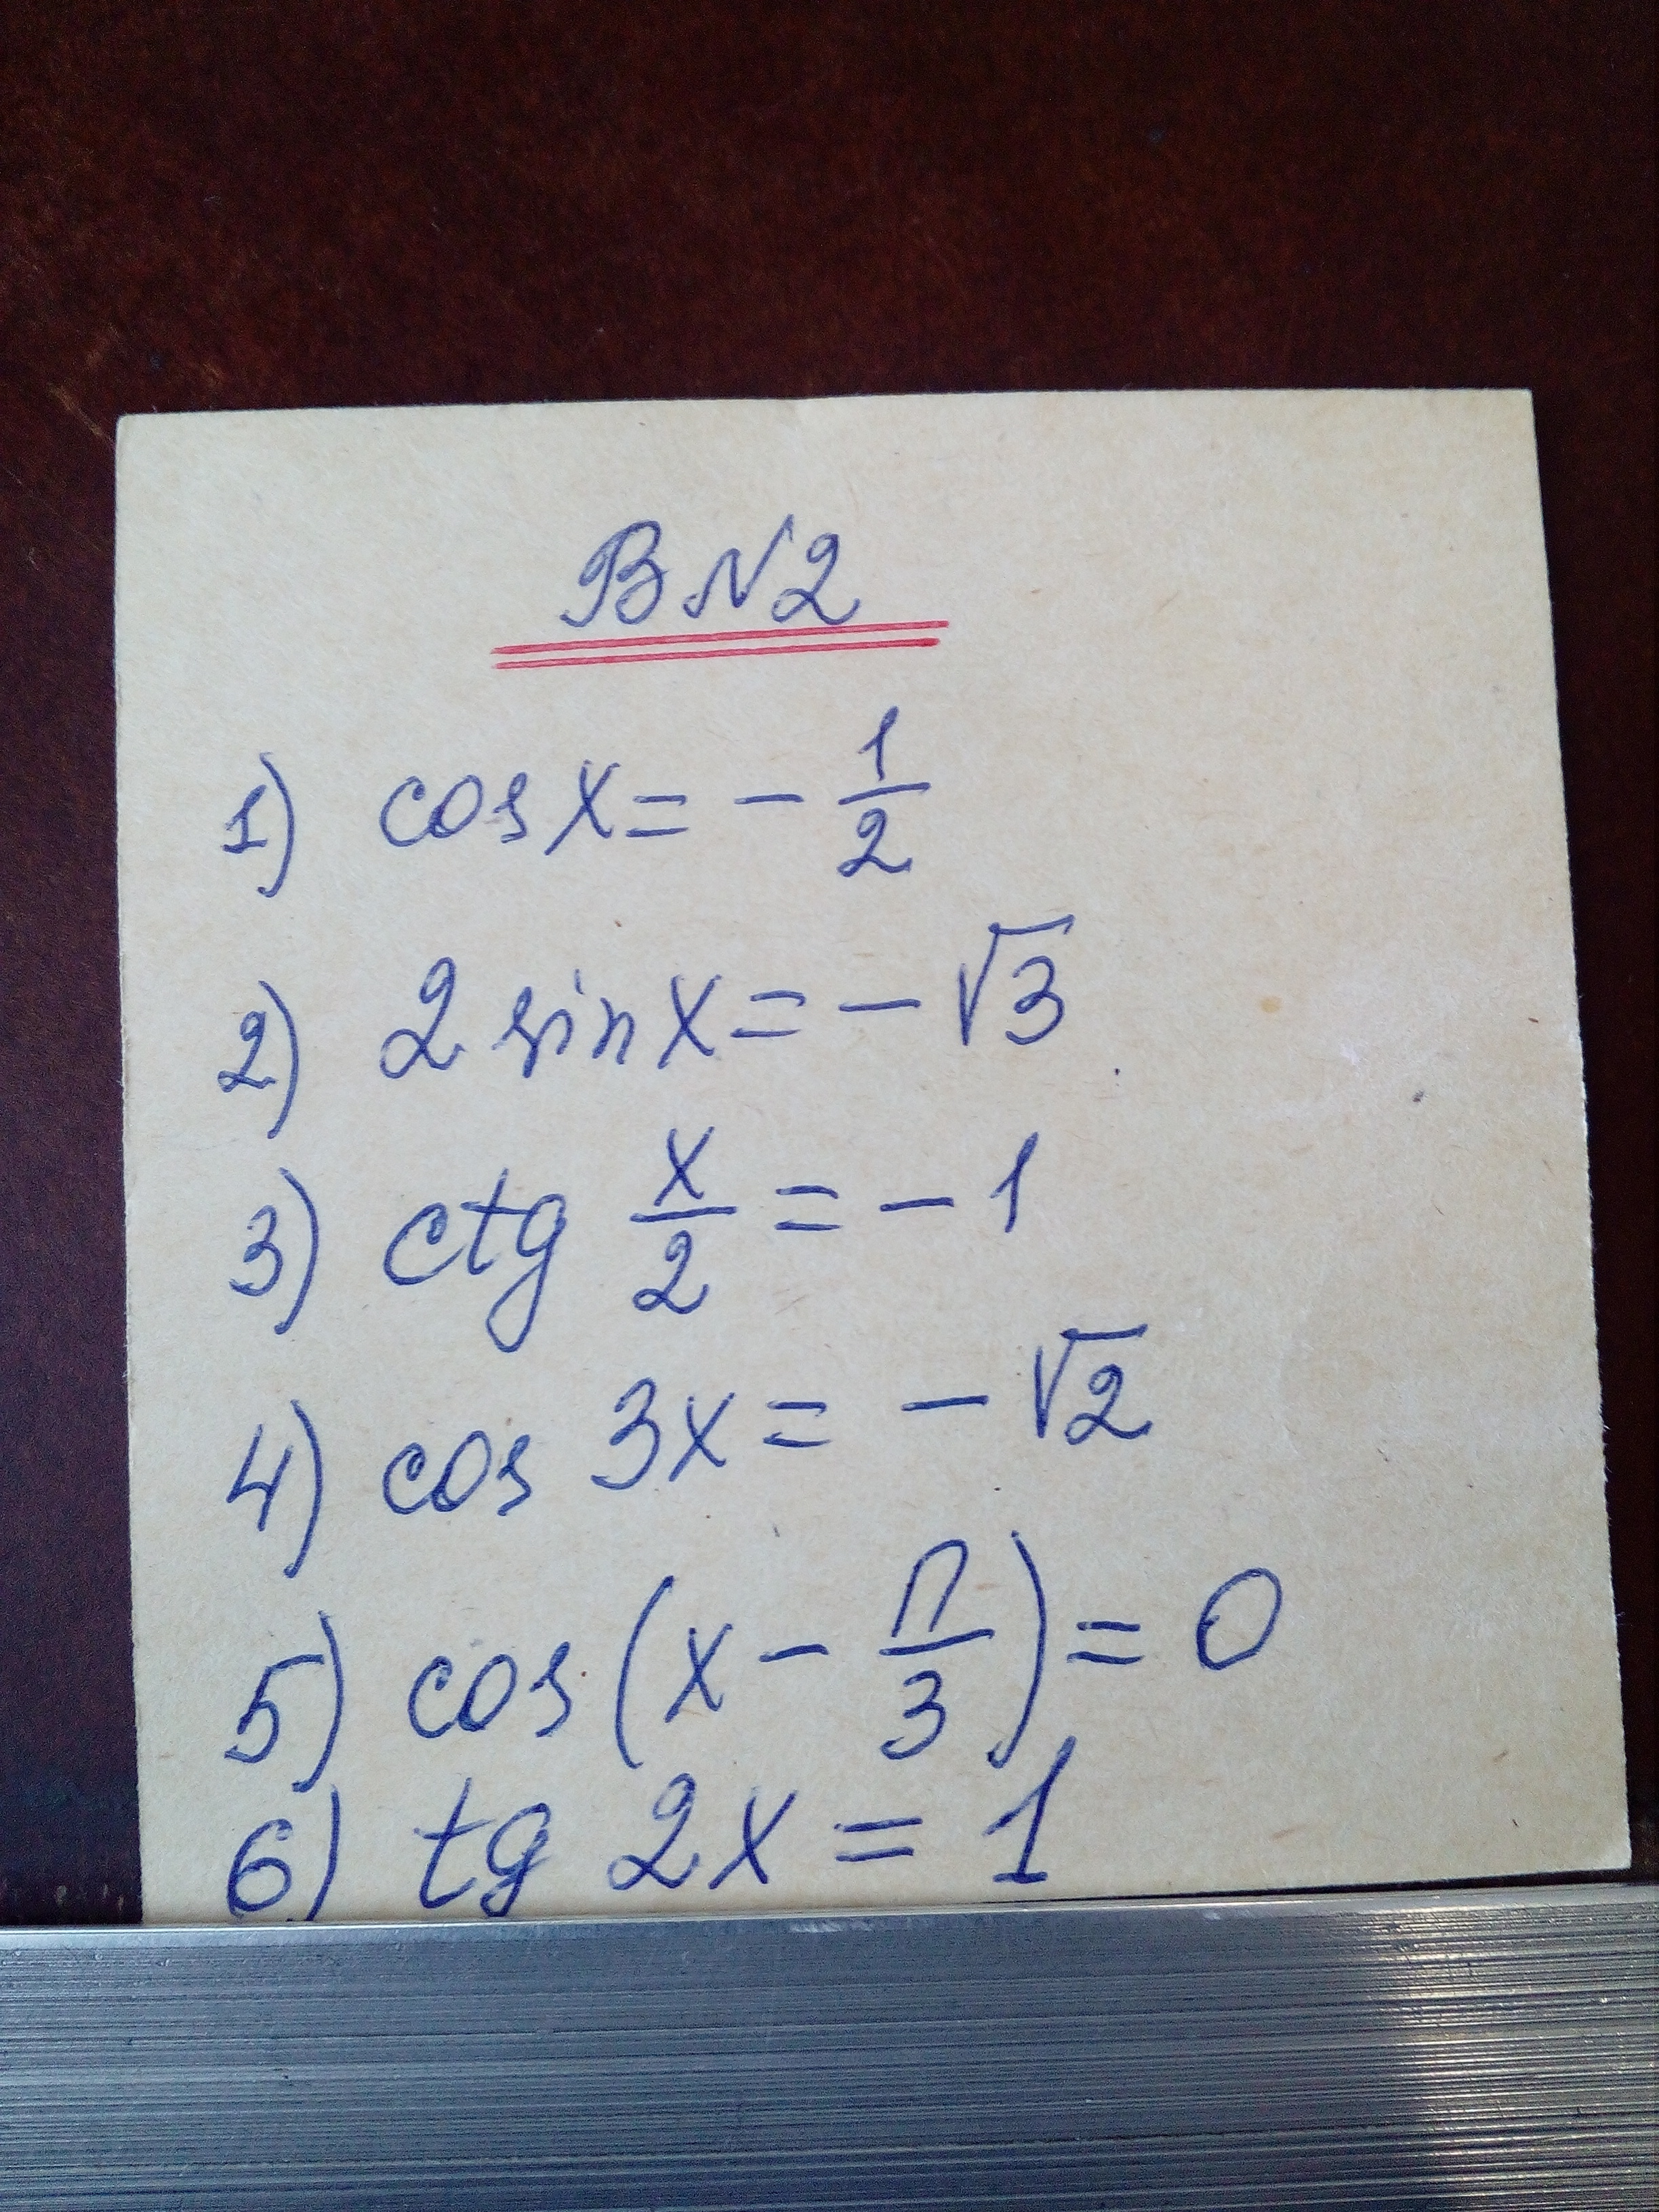 В N2
1) cos x = - 1/2
2) 2 sin x = - √3
3) ctg x/2 = - 1
4) cos 3x = - √2
5) cos (x - π/3) = 0
6) tg 2x = 1